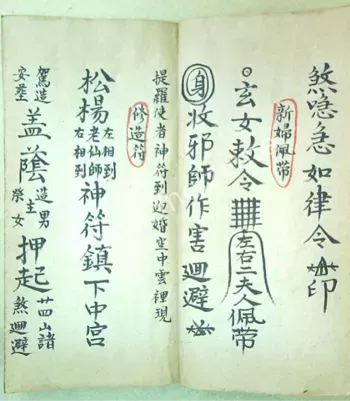 煞唸急如律令 印
新婦佩帶
玄女敕令 左右二夫人佩帶
身 收邪師作害廻避
提羅使者神符到迎婚空中雲裡現
修造符
松楊 左相到 老仙師 右相到 神符鎮下中宮
駕造 安葬 盖蔭 造男 主 癸女 押起 廿四山諸煞廻避